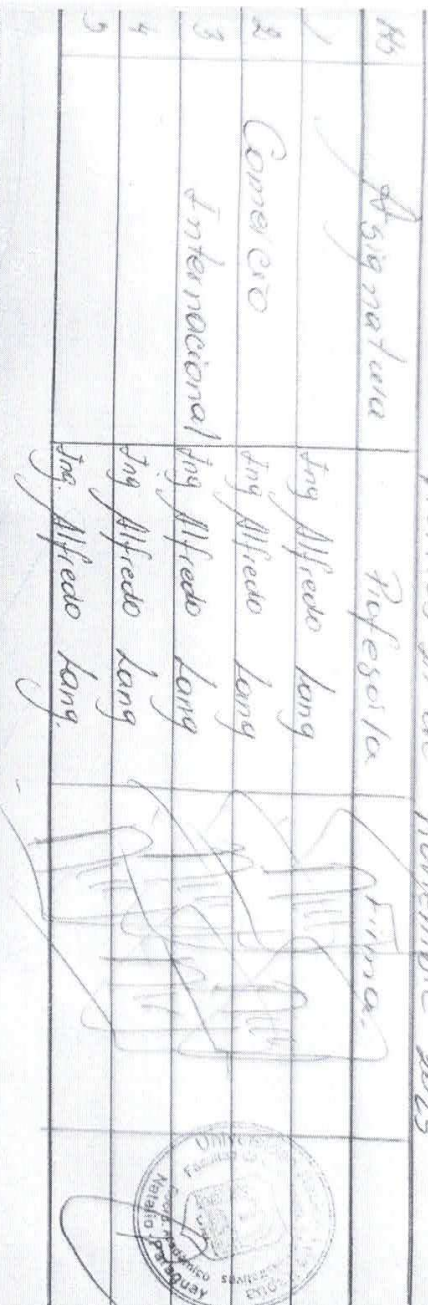 noviembre 2023
Hs Asignatura Profesor/a Firma.
1 Ing Alfredo Lang
2 Comercio Ing Alfredo Lang
3 Internacional Ing Alfredo Lang
4 Ing Alfredo Lang
5 Ing. Alfredo Lang.
Facultad de
Natalio Paraguay